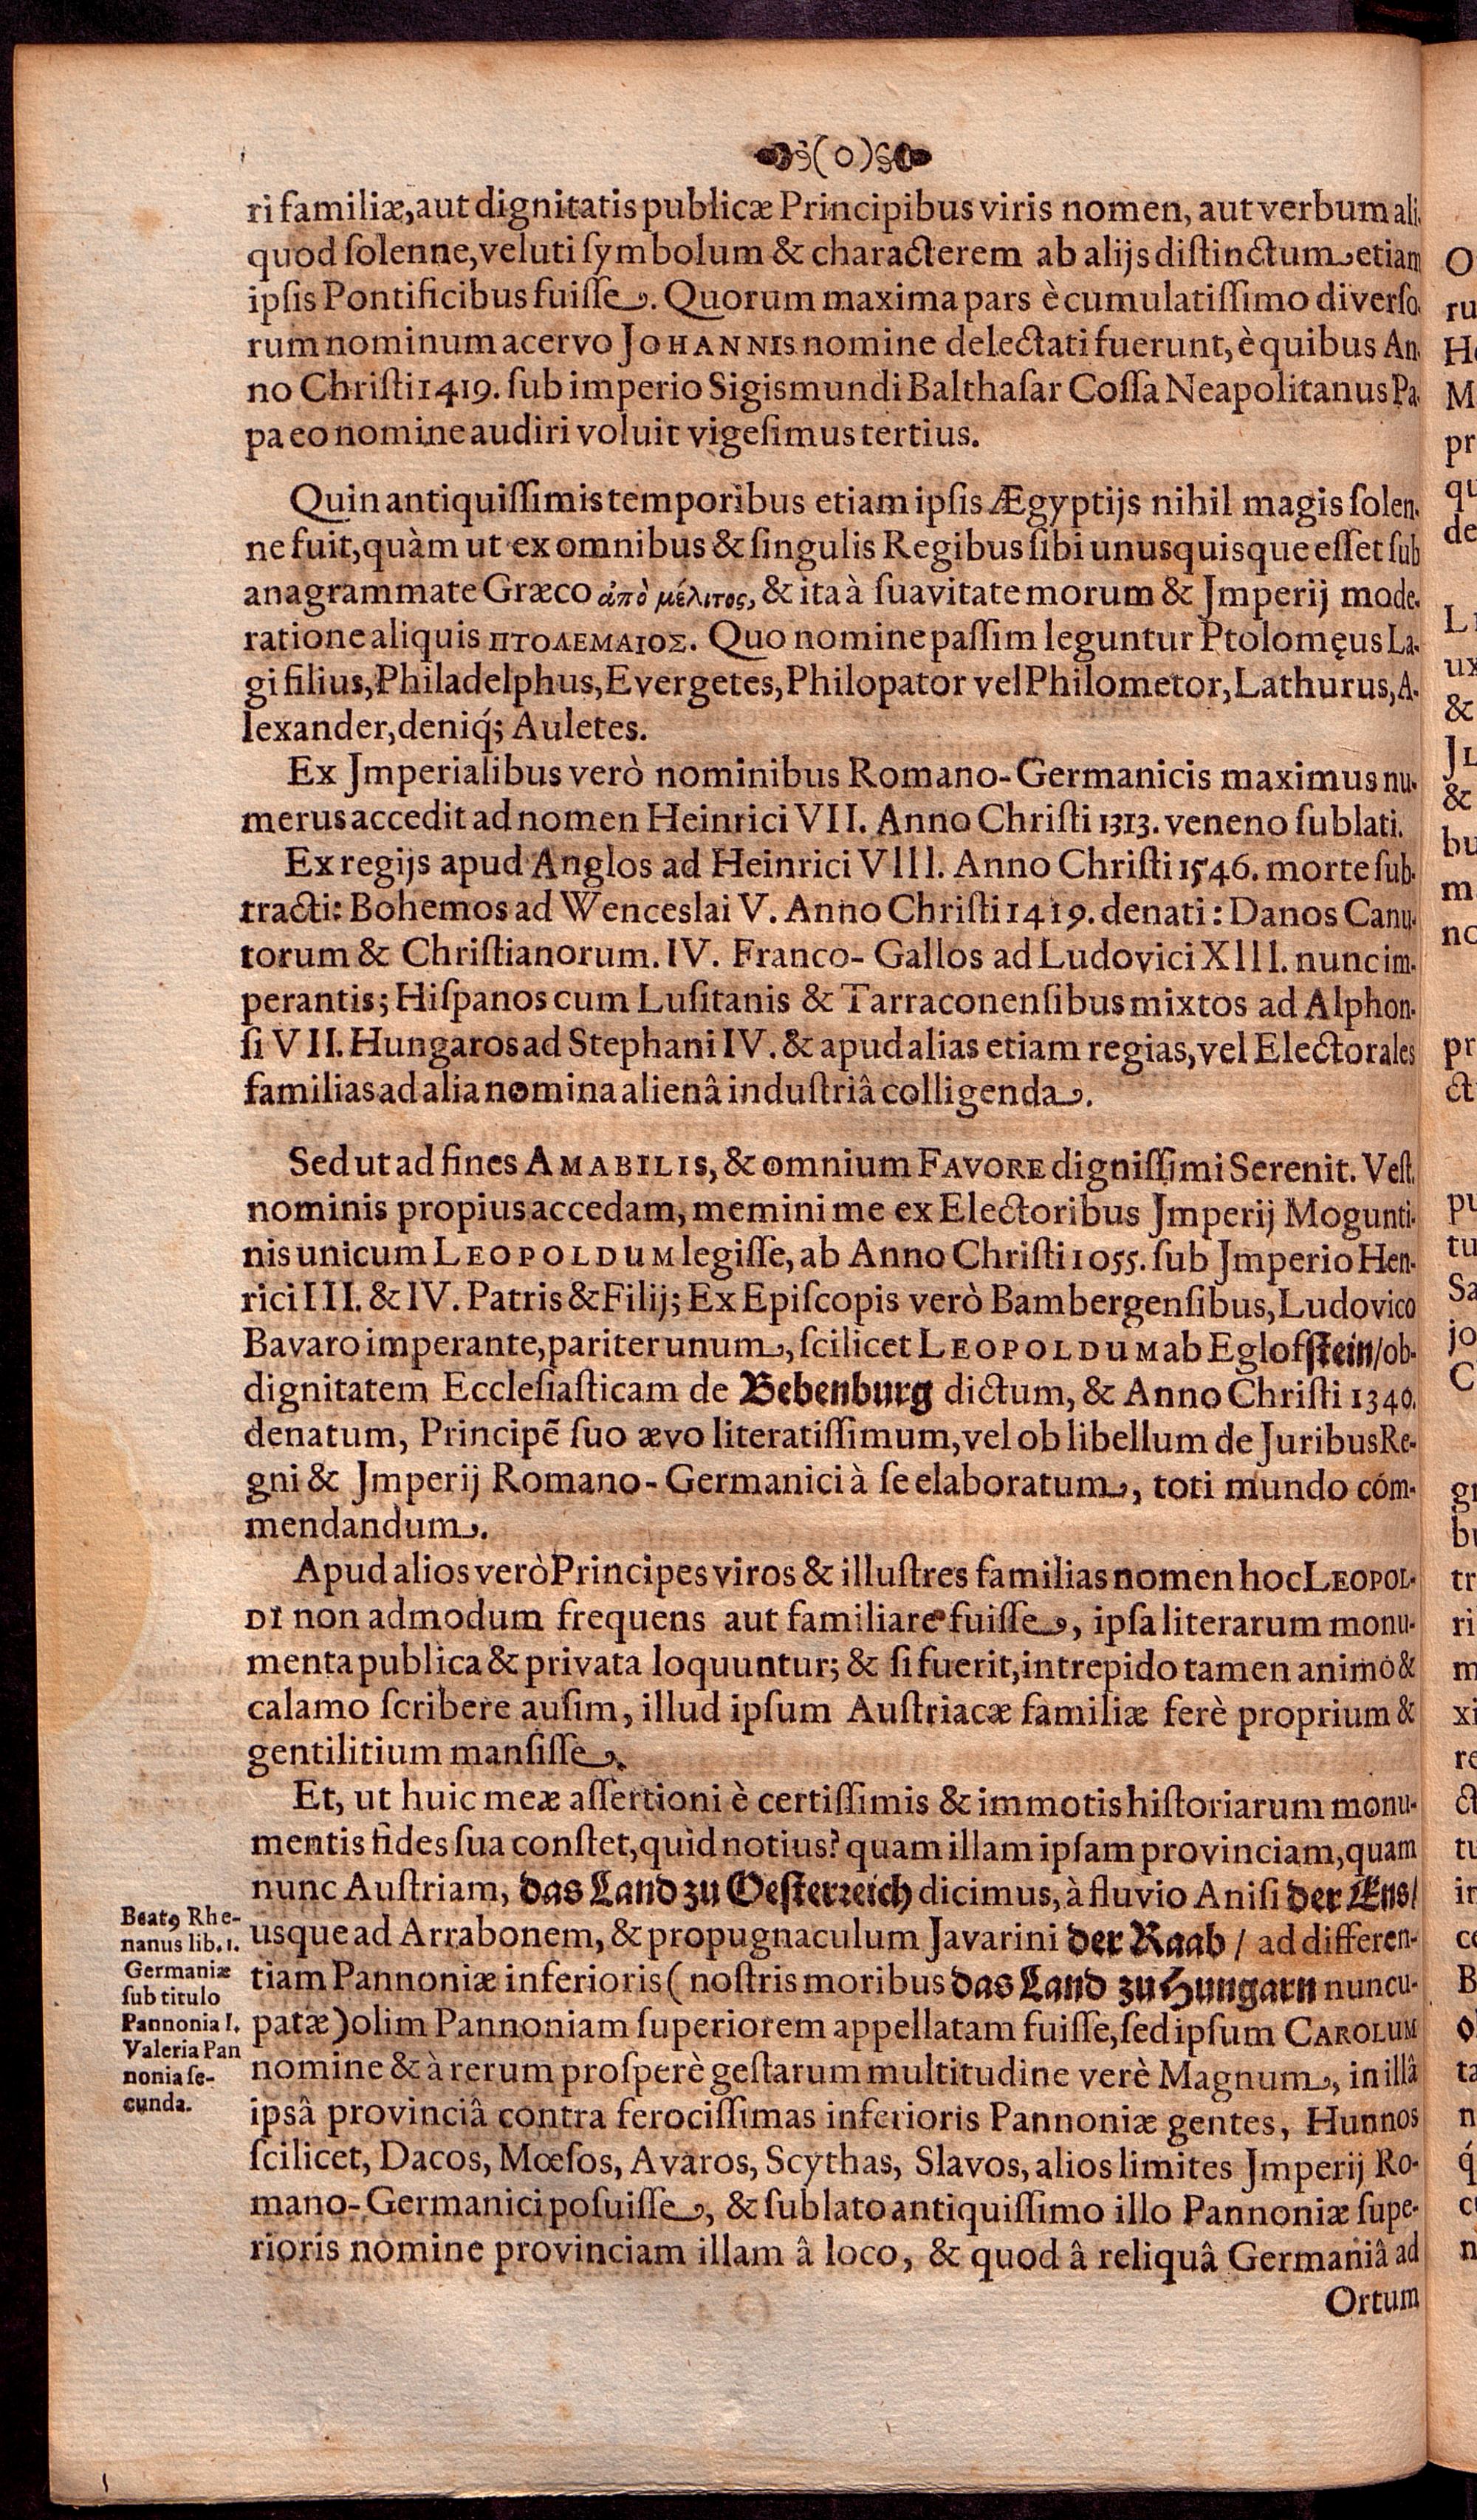 (o)
ri familiæ, aut dignitatis publicæ Principibus viris nomen, aut verbum ali-
quod ſolenne, veluti ſymbolum & characterem ab alijs diſtinctum etiam
ipſis Pontificibus fuiſſe. Quorum maxima pars è cumulatiſſimo diverſo-
rum nominum acervo JOHANNIS nomine delectati fuerunt, è quibus An-
no Chriſti 1419. ſub imperio Sigismundi Balthaſar Coſſa Neapolitanus Pa-
pa eo nomine audiri voluit vigeſimus tertius.
Quin antiquiſſimis temporibus etiam ipſis Ægyptijs nihil magis ſolen-
ne fuit, quàm ut ex omnibus & ſingulis Regibus ſibi unusquisque eſſet ſub
anagrammate Græco ἀπὸ μέλιτος, & ita à ſuavitate morum & Jmperij mode-
ratione aliquis ΠΤΟΛΕΜΑΙΟΣ. Quo nomine paſſim leguntur Ptolomęus La-
gi filius, Philadelphus, Evergetes, Philopator vel Philometor, Lathurus, A-
lexander, deniq́; Auletes.
Ex Jmperialibus verò nominibus Romano-Germanicis maximus nu-
merus accedit ad nomen Heinrici VII. Anno Chriſti 1313. veneno ſublati.
Ex regijs apud Anglos ad Heinrici VIII. Anno Chriſti 1546. morte ſub-
tracti: Bohemos ad Wenceslai V. Anno Chriſti 1419. denati: Danos Canu-
torum & Chriſtianorum. IV. Franco- Gallos ad Ludovici XIII. nunc im-
perantis; Hiſpanos cum Luſitanis & Tarraconenſibus mixtos ad Alphon-
ſi VII. Hungaros ad Stephani IV. & apud alias etiam regias, vel Electorales
familias ad alia nomina alienâ induſtriâ colligenda.
Sed ut ad fines AMABILIS, & omnium FAVORE digniſſimi Serenit. Veſt.
nominis propius accedam, memini me ex Electoribus Jmperij Mogunti-
nis unicum LEOPOLDUM legiſſe, ab Anno Chriſti 1055. ſub Jmperio Hen-
rici III. & IV. Patris & Filij; Ex Epiſcopis verò Bambergenſibus, Ludovico
Bavaro imperante, pariter unum, ſcilicet LEOPOLDUM ab Eglofſtein/ ob-
dignitatem Eccleſiaſticam de Bebenburg dictum, & Anno Chriſti 1340.
denatum, Principẽ ſuo ævo literatiſſimum, vel ob libellum de Juribus Re-
gni & Jmperij Romano-Germanici à ſe elaboratum, toti mundo cóm-
mendandum.
Apud alios verò Principes viros & illuſtres familias nomen hoc LEOPOL-
DI non admodum frequens aut familiare fuiſſe, ipſa literarum monu-
menta publica & privata loquuntur; & ſi fuerit, intrepido tamen animo &
calamo ſcribere auſim, illud ipſum Auſtriacæ familiæ ferè proprium &
gentilitium manſiſſe.
Et, ut huic meæ aſſertioni è certiſſimis & immotis hiſtoriarum monu-
mentis fides ſua conſtet, quid notius? quam illam ipſam provinciam, quam
nunc Auſtriam, das Land zu Oeſterreich dicimus, à fluvio Aniſi der Æns/
usque ad Arrabonem, & propugnaculum Javarini der Raab / ad differen-
tiam Pannoniæ inferioris (noſtris moribus das Land zu Hungarn nuncu-
patæ) olim Pannoniam ſuperiorem appellatam fuiſſe, ſed ipſum CAROLUM
nomine & à rerum proſperè geſtarum multitudine verè Magnum, in illâ
ipsâ provinciâ contra ferociſſimas inferioris Pannoniæ gentes, Hunnos
ſcilicet, Dacos, Mœſos, Avaros, Scythas, Slavos, alios limites Jmperij Ro-
mano-Germanici poſuiſſe, & ſublato antiquiſſimo illo Pannoniæ ſupe-
rioris nomine provinciam illam â loco, & quod â reliquâ Germaniâ ad
Ortum
Beatꝰ Rhe-
nanus lib. 1.
Germaniæ
ſub titulo
Pannonia I.
Valeria Pan
nonia ſe-
cunda.